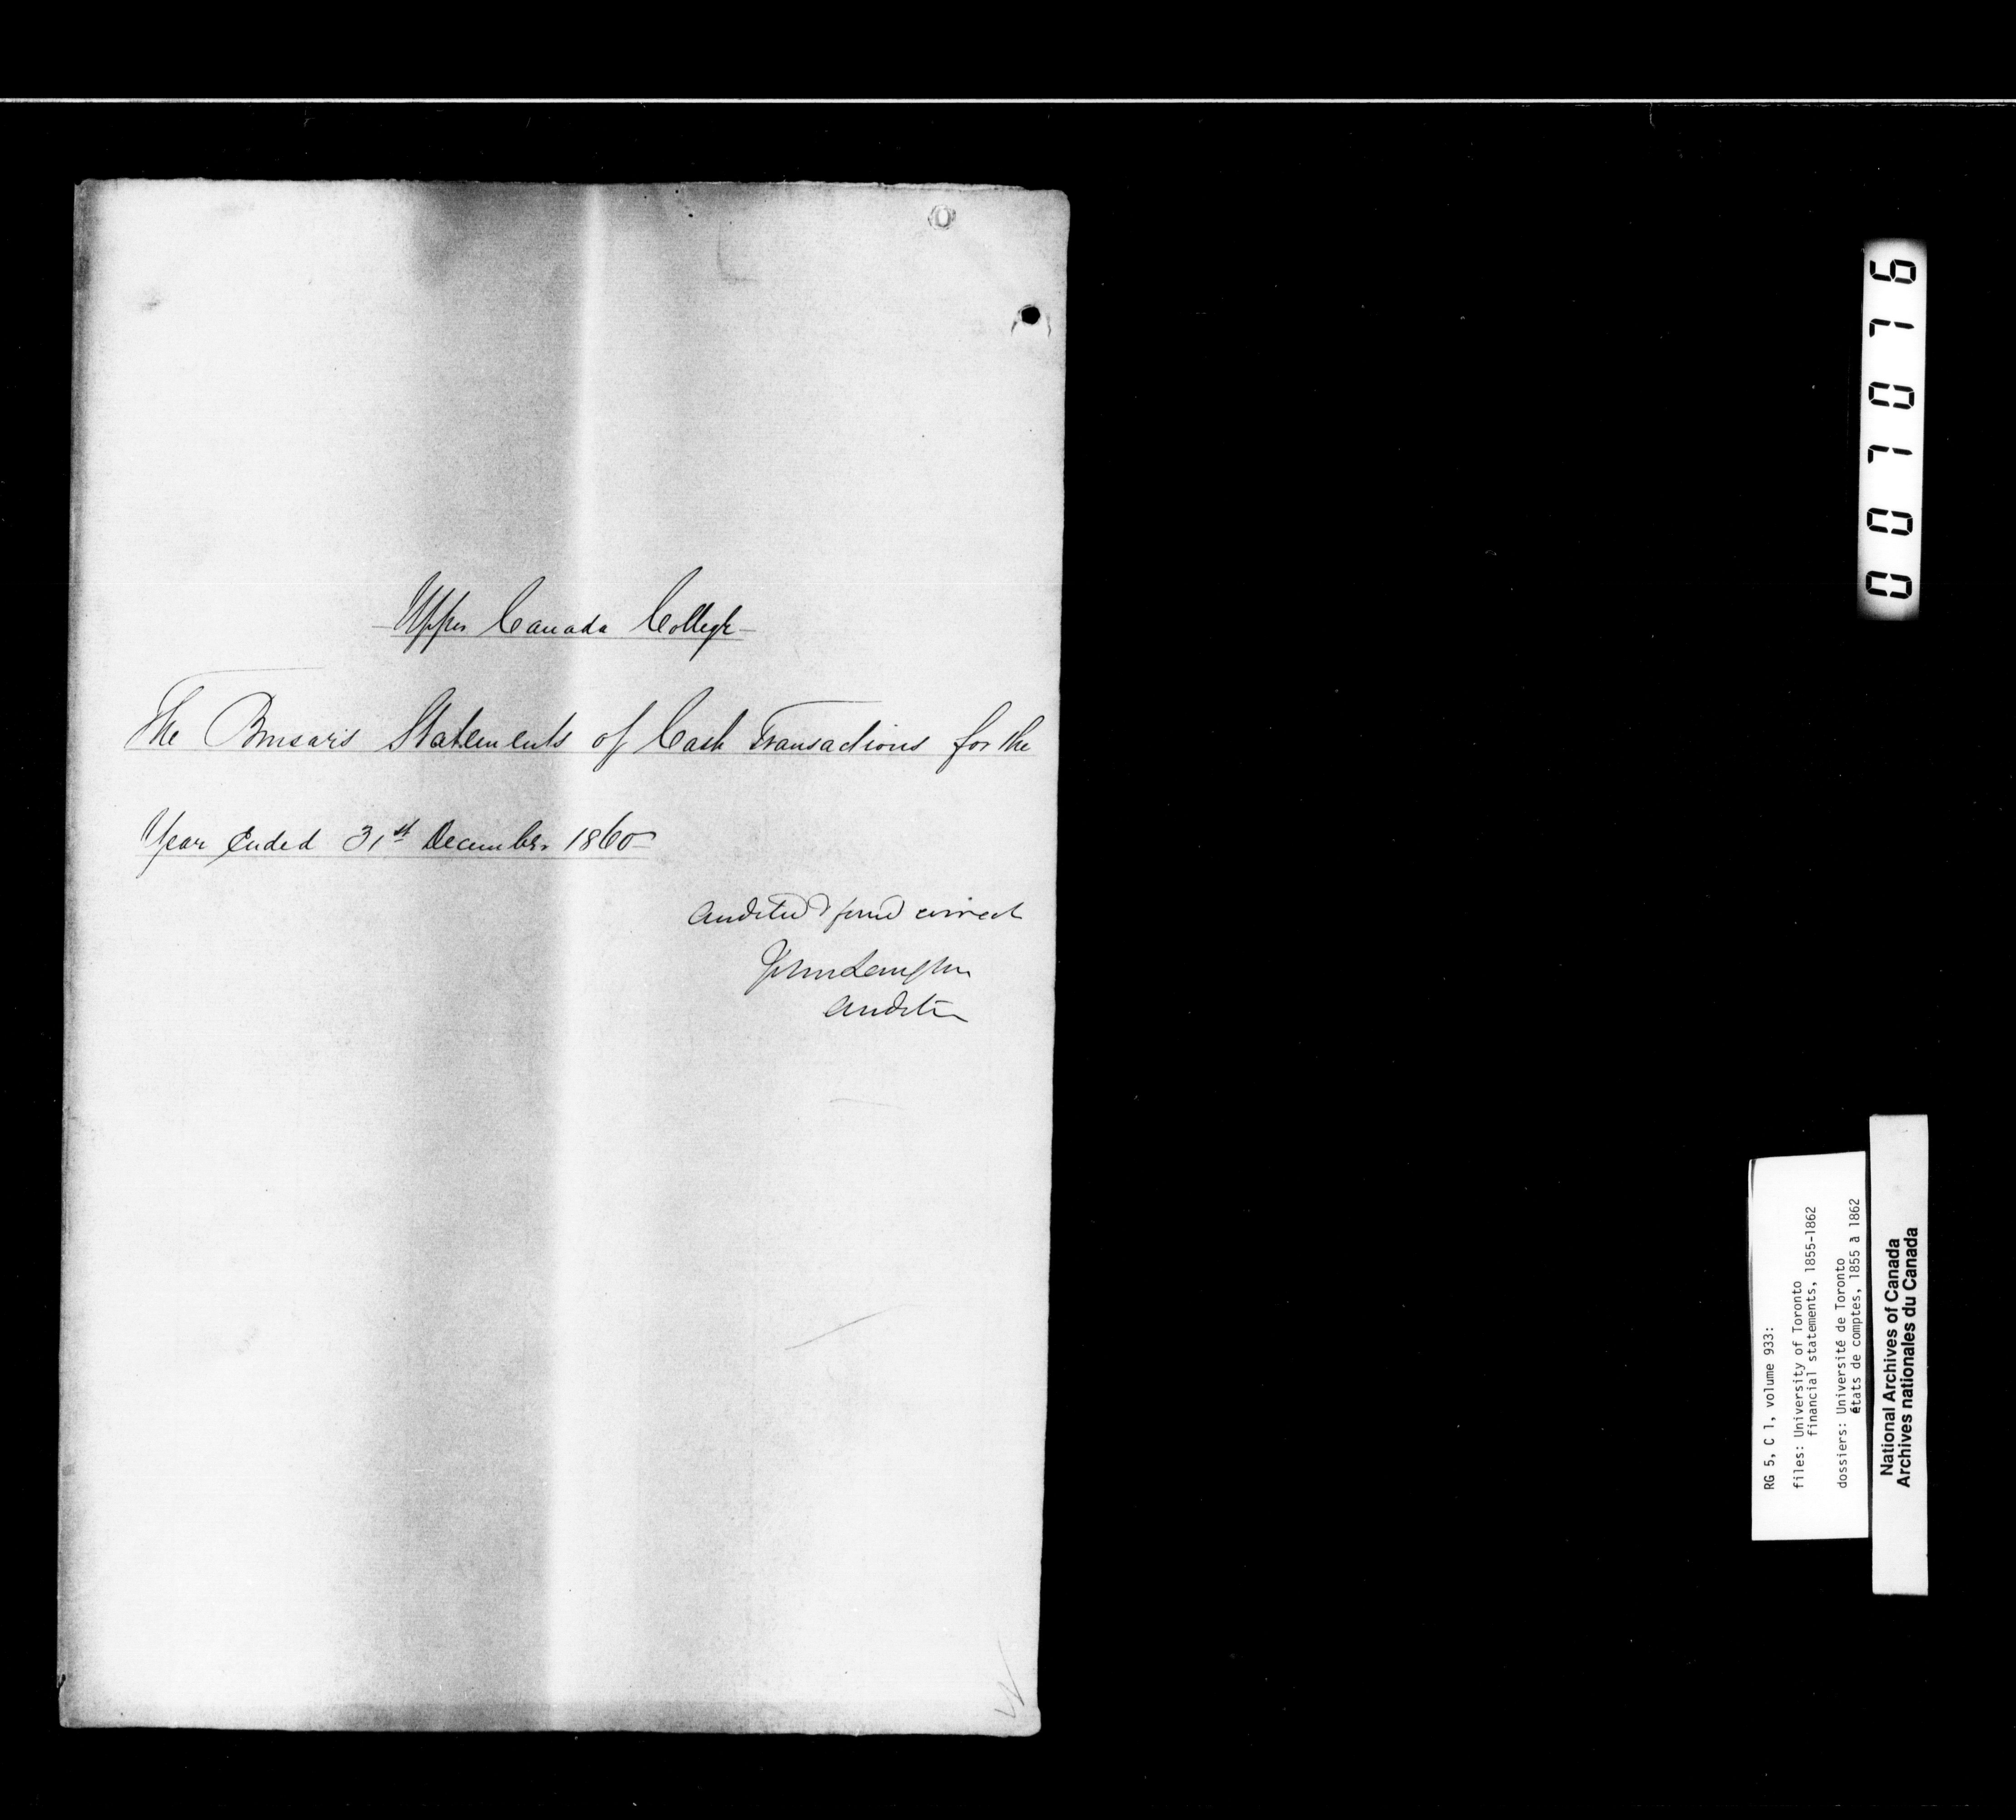 Upper Canada College
The Bursar's Statements of Cash Transactions for the
Year Ended 31st December 1860
Audited & found correct
John Langton
Auditor
007076
RG 5, C 1, volume 933:
files: University of Toronto
financial statements, 1855-1862
dossiers: Université de Toronto
états de comptes, 1855 à 1862
National Archives of Canada
Archives nationales du Canada